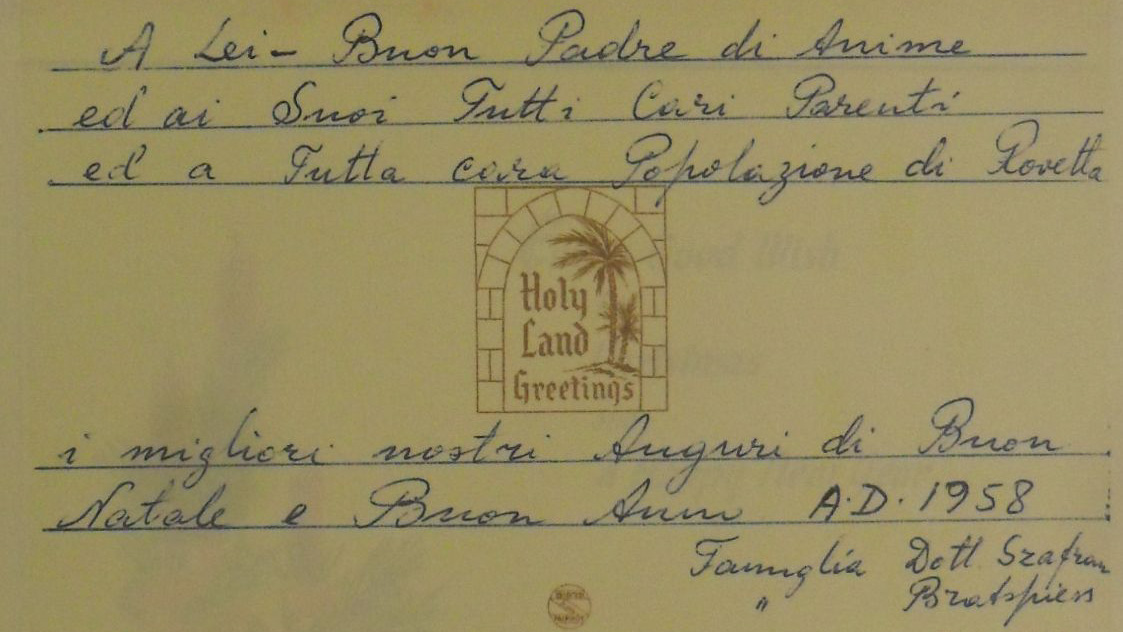 A Lei - Buon Padre di Anime
ed ai Suoi Tutti Cari Parenti
ed a Tutta cara Popolazione di Rovetta
Holy
Land
Greetings
i migliori nostri Auguri di Buon
Natale e Buon Anno A.D. 1958
Famiglia Dott. Szafran
" Bratspiess